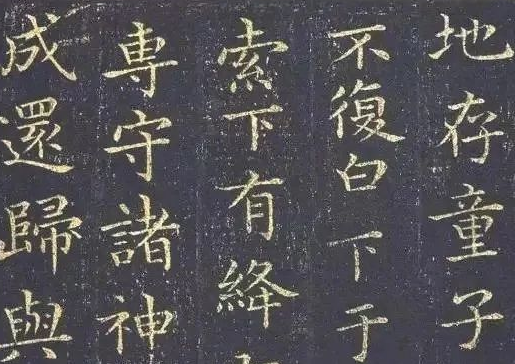 地存童子
不復白下于
索下有絳
専守諸神
成還歸與